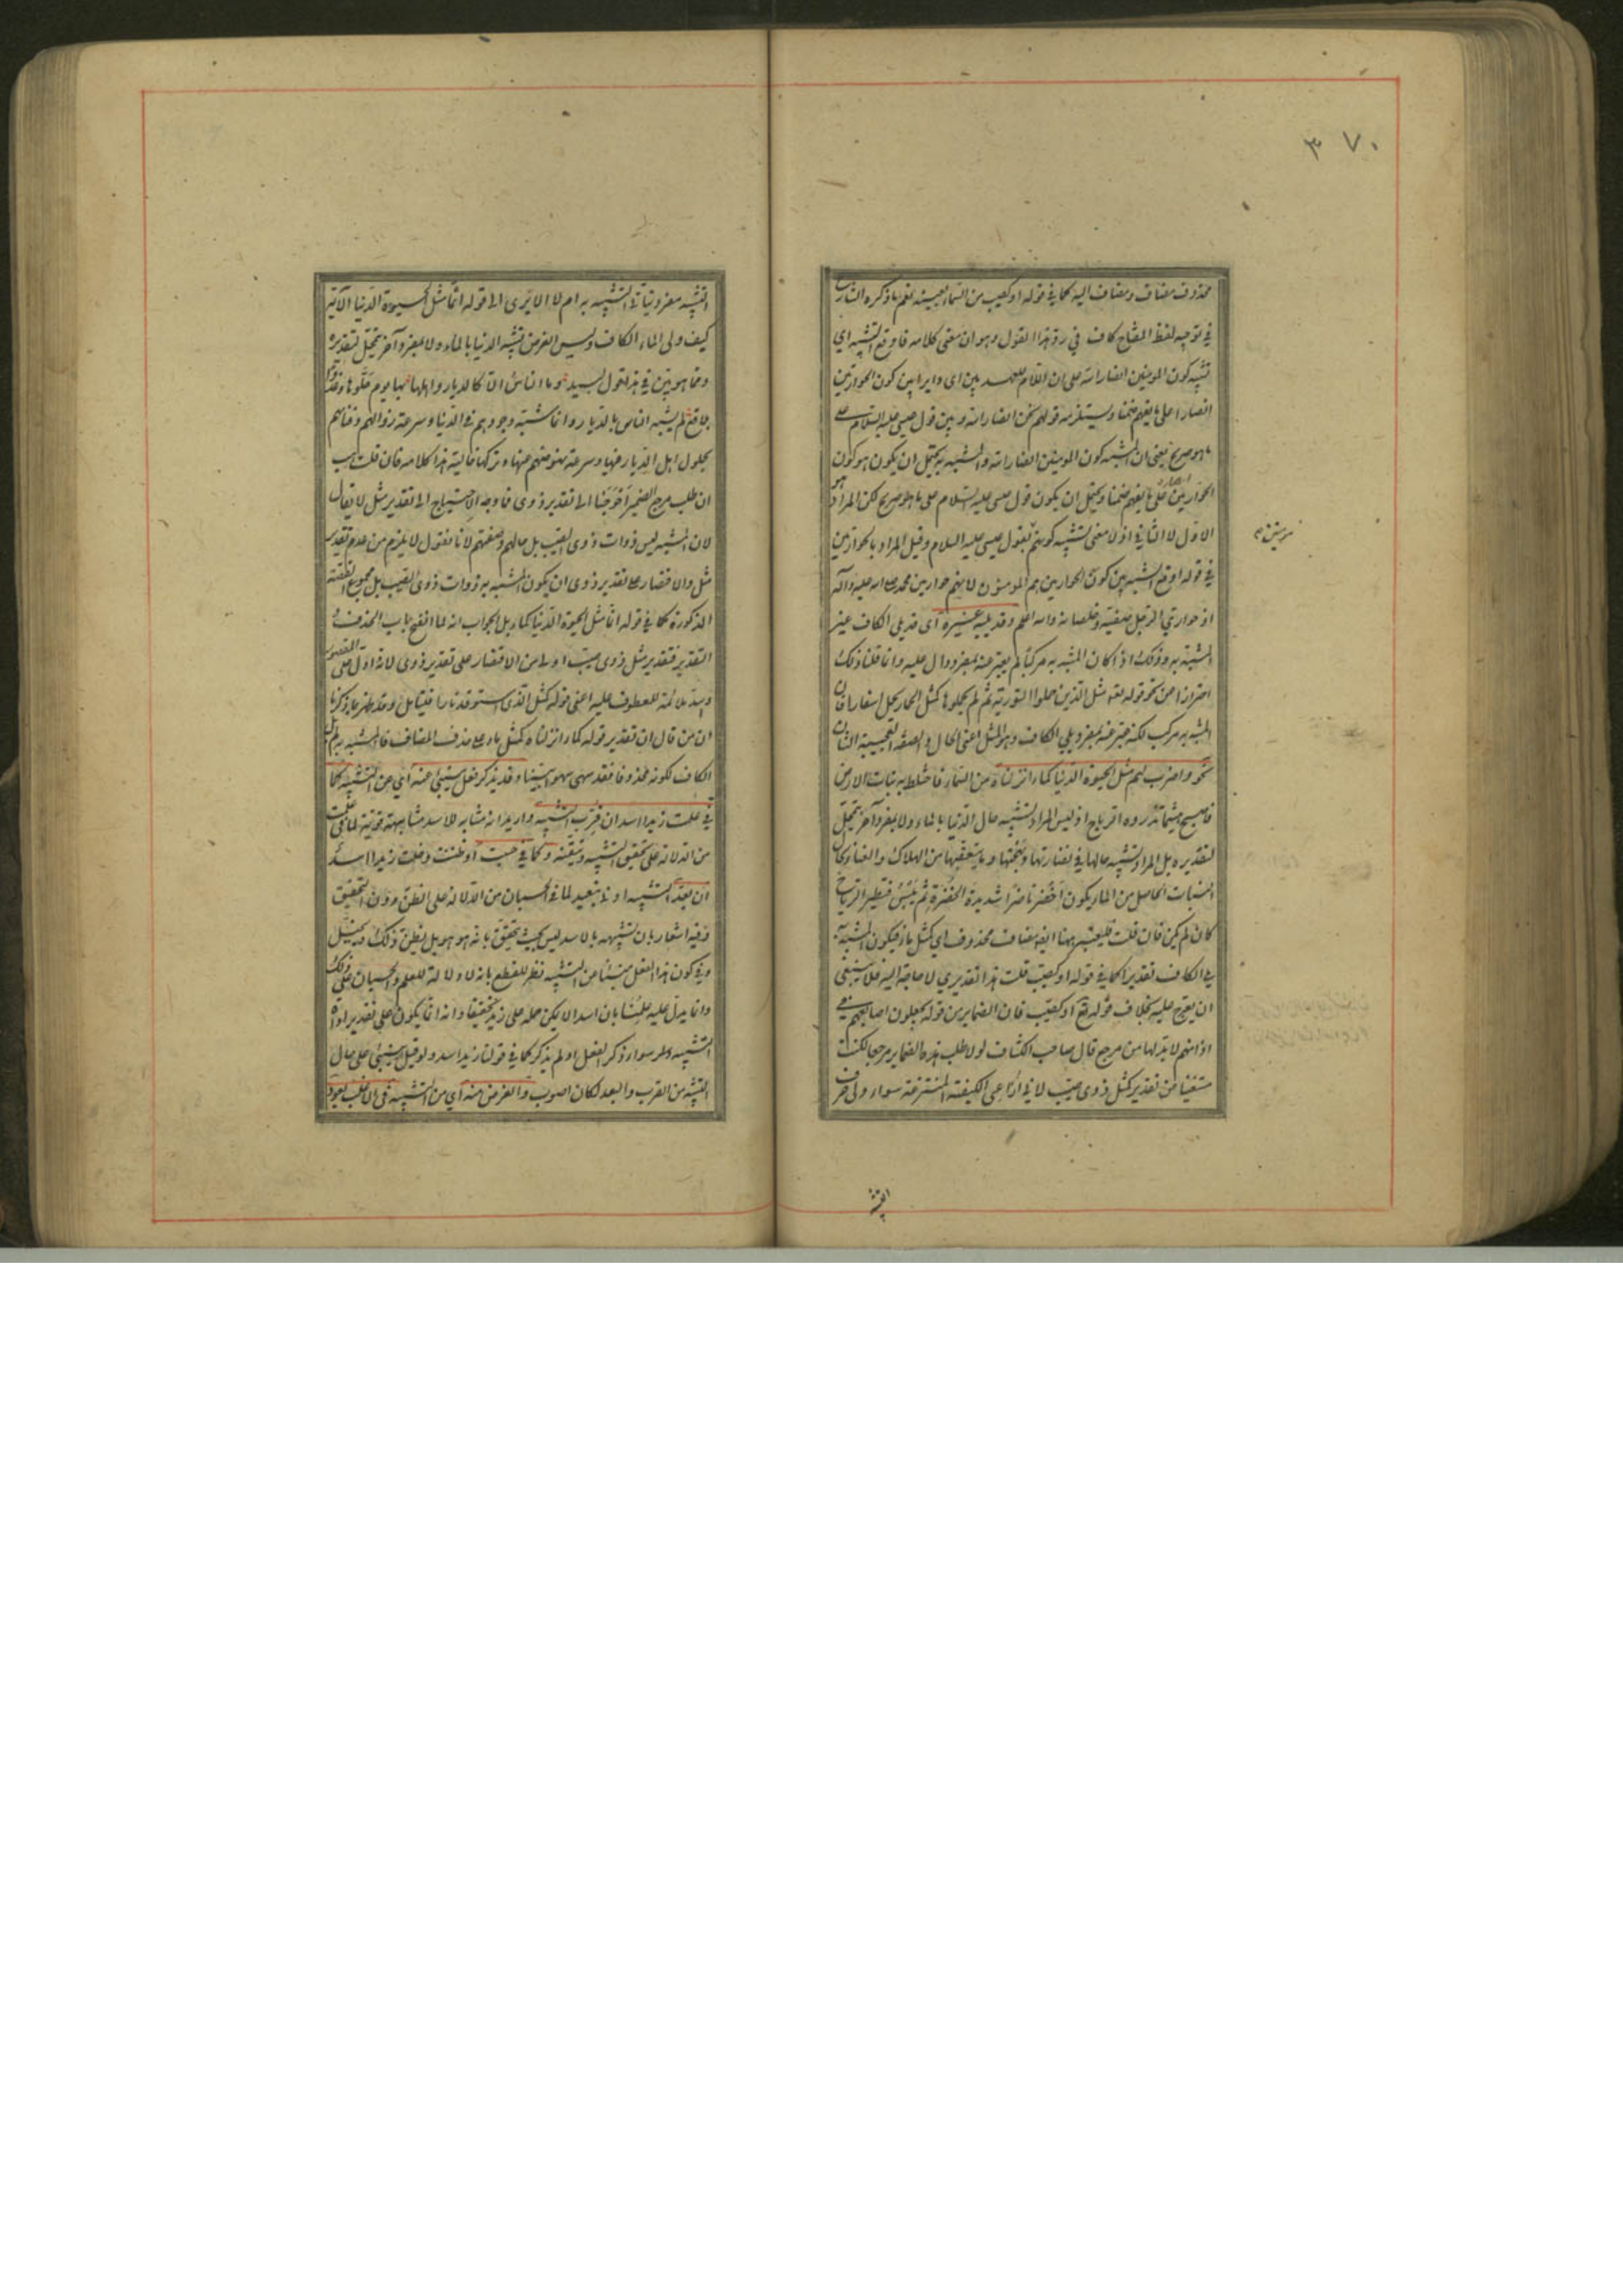 ٣٧٠
محذوف مضاف ومضاف اليه كما في قوله او كصيب من السماء بعينه نعم ما ذكره الشارح
في توجيه لفظ المفتاح كاف في رد هذا القول وهو ان معنى كلامه فاوقع التشبيه اي
تشبيه كون المومنين انصار الله على ان اللام للعهد بين اي دايرا بين كون الحواريين
انصارا على ما يفهم ضمنا ويستلزمه قولهم نحن انصار الله وبين قول عيسى عليه السلام على
ما هو صريح يعنى ان المشبه كون المومنين انصار الله والمشبه به يحتمل ان يكون هو كون
الحواريين انصارا على ما يفهم ضمنا ويحتمل ان يكون قول عيسى عليه السلام على ما هو صريح لكن المراد هو
الاول لا الثاني اذ لا معنى لتشبيه كونهم بقول عيسى عليه السلام وقيل المراد بالحواريين
في قوله اوقع التشبيه بين كون الحواريين هم المومنون لانهم حواريين محمد صلى الله عليه وآله
اذ حواري الرجل صفيه وخلصانه والله اعلم وقد يليه غيره اى قد يلى الكاف غير
المشبه به وذلك اذا كان المشبه به مركبا لم يعبر عنه بمفرد دال عليه وانما قلنا ذلك
احترازا عن نحو قوله تعه مثل الذين حملوا التورية ثم لم يحملوها كمثل الحمار يحمل اسفارا فان
المشبه به مركب لكنه عبر عنه بمفرد يلي الكاف وهو المثل اعنى الحال والصفة العجيبة الشان
نحو واضرب لهم مثل الحيوة الدنيا كماء انزلناه من السماء فاختلط به نبات الارض
فاصبح هشيما تذروه الرياح اذ ليس المراد تشبيه حال الدنيا بالماء ولا بمفرد آخر يتمحل
لتقديره بل المراد تشبيه حالها في نضارتها وبهجتها وما يتعقبها من الهلاك والفناء بحال
النبات الحاصل من الماء يكون اخضر ناضرا شديد الخضرة ثم ييبس فتطيره الرياح
كان لم يكن فان قلت فليعتبر ههنا ايضا مضاف محذوف اي كمثل ماء فيكون المشبه به
يلي الكاف تقديرا كما في قوله او كصيب قلت هذا تقدير لا حاجة اليه فلا ينبغي
ان يعرج عليه بخلاف قوله تع او كصيب فان الضماير من قوله يجعلون اصابعهم في
اذانهم لا بد لها من مرجع قال صاحب الكشاف لولا طلب هذه الضماير مرجعا لكنت
مستغنيا عن تقدير كمثل ذوى صيب لاني اراعى الكيفية المنتزعة سواء ولى حرف
التشبيه
التشبيه مفرد يتاتى التشبيه به ام لا الا يرى الى قوله انما مثل الحيوة الدنيا الآية
كيف ولى الماء الكاف وليس الغرض تشبيه الدنيا بالماء ولا بمفرد آخر يتمحل لتقديره
ومما هو بين في هذا قول لبيد وما الناس الا كالديار واهلها بها يوم حلوها وغدوا
بلاقع لم يشبه الناس بالديار وانما شبه وجودهم في الدنيا وسرعة زوالهم وفنائهم
بحلول اهل الديار فيها وسرعة نهوضهم عنها وتركها خالية هذا كلامه فان قلت هب
ان طلب مرجع الضمير احوجنا الى تقدير ذوى فما وجه الاحتياج الى تقدير مثل لا يقال
لان المشبه ليس ذوات ذوى الصيب بل حالهم وصفتهم لانا نقول لا يلزم من عدم تقدير
مثل والاقتصار على تقدير ذوى ان يكون المشبه به ذوات ذوى الصيب بل مجموع القصة
المذكورة كما في قوله انما مثل الحيوة الدنيا كماء بل الجواب انه لما انفتح باب الحذف و
التقدير فتقدير مثل ذوى صيب اولى من الاقتصار على تقدير ذوى لانه ادل على المقصود
واشد ملائمة للمعطوف عليه اعنى قوله كمثل الذى استوقد نارا فليتامل وقد ظهر بما ذكرنا
ان من قال ان تقدير قوله كماء انزلناه كمثل ماء على حذف المضاف فالمشبه به لم يل
الكاف لكونه محذوفا فقد سهى سهوا بينا وقد يذكر فعل ينبئ عنه اي عن التشبيه كما
في علمت زيدا اسدا ان قرب التشبيه واريد انه مشابه للاسد مشابهة قوية لما في علمت
من الدلالة على تحقيق التشبيه وتيقنه وكما في حسبت او ظننت وخلت زيدا اسدا
ان بعد التشبيه ادنى تبعيد لما في الحسبان من الدلالة على الظن دون التحقيق
وفيه اشعار بان تشبيهه بالاسد ليس بحيث يتحقق بانه هو هو بل يظن ذلك ويتخيل
وفي كون هذا الفعل منبئا عن التشبيه نظر للقطع بانه لا دلالة للعلم والحسبان على ذلك
وانما يدل عليه علمنا بان اسدا لا يمكن حمله على زيد تحقيقا وانه انما يكون على تقدير اداة
التشبيه سواء ذكر الفعل او لم يذكر كما في قولنا زيد اسد ولو قيل انه ينبئ على حال
التشبيه من القرب والبعد لكان اصوب والغرض منه اي من التشبيه في الاغلب يعود